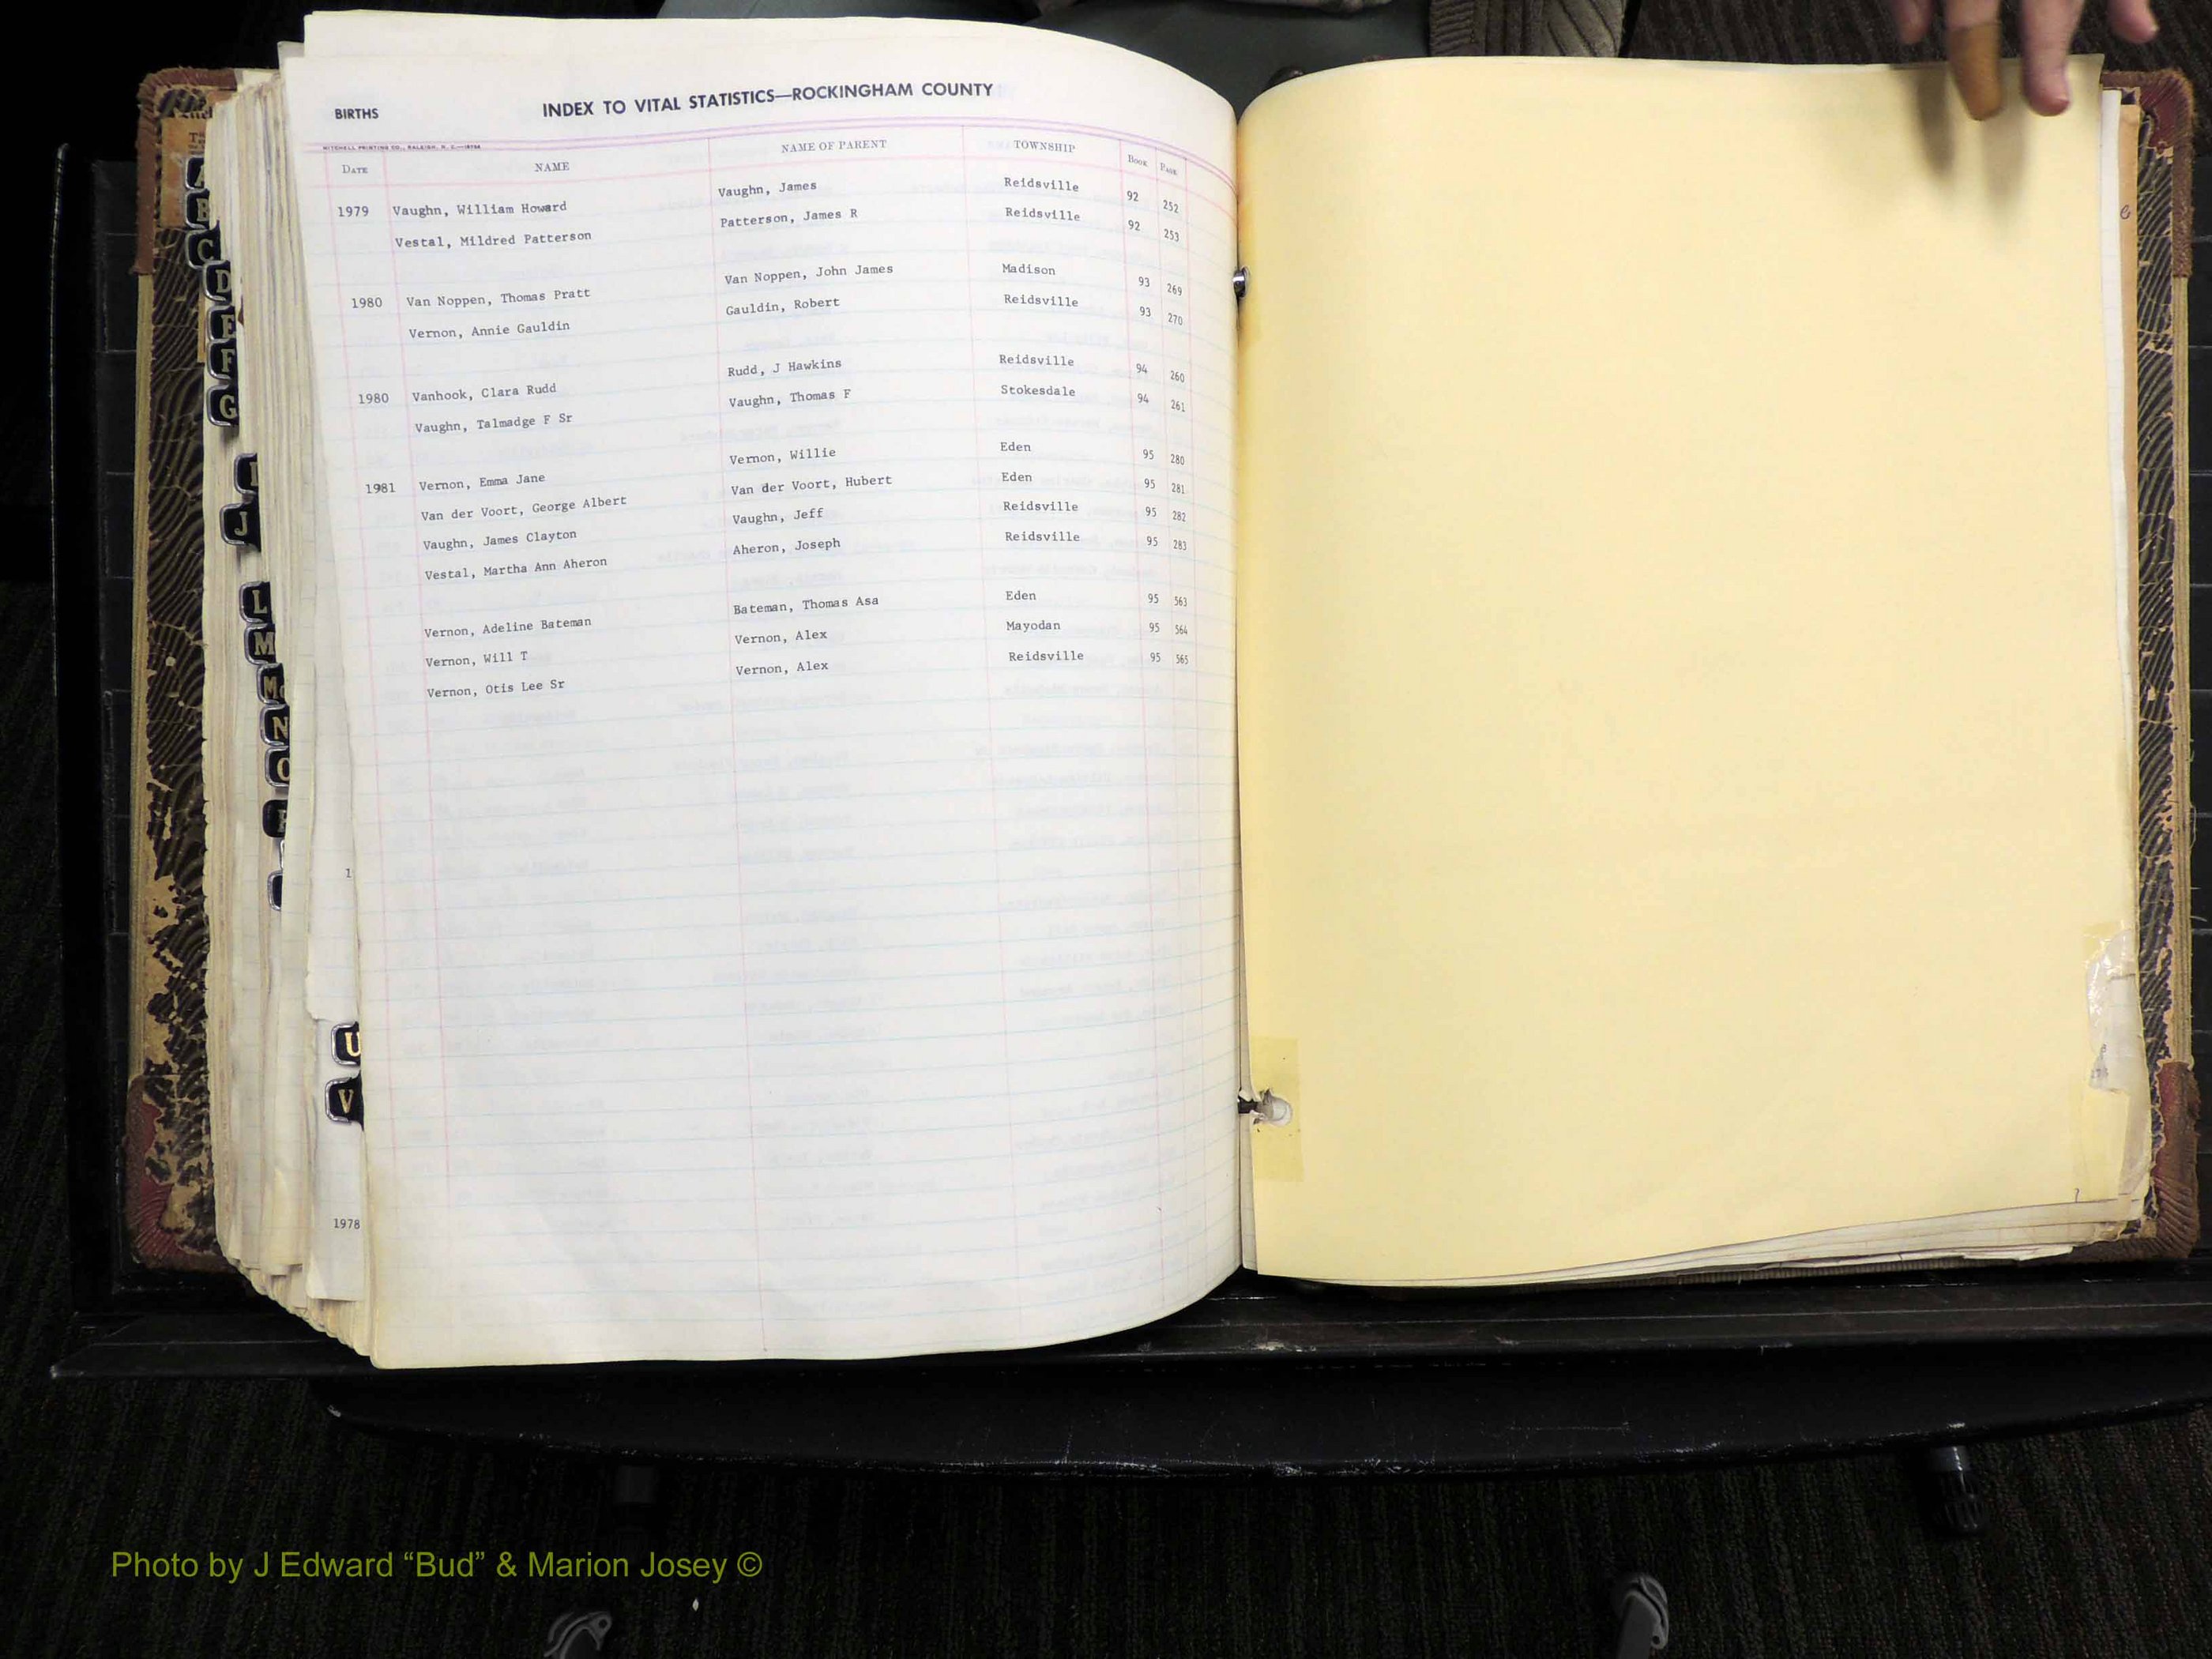 BIRTHS INDEX TO VITAL STATISTICS—ROCKINGHAM COUNTY
MITCHELL PRINTING CO., RALEIGH, N. C.
DATE NAME NAME OF PARENT TOWNSHIP BOOK PAGE
1979 Vaughn, William Howard Vaughn, James Reidsville 92 252
Vestal, Mildred Patterson Patterson, James R Reidsville 92 253
1980 Van Noppen, Thomas Pratt Van Noppen, John James Madison 93 269
Vernon, Annie Gauldin Gauldin, Robert Reidsville 93 270
1980 Vanhook, Clara Rudd Rudd, J Hawkins Reidsville 94 260
Vaughn, Talmadge F Sr Vaughn, Thomas F Stokesdale 94 261
1981 Vernon, Emma Jane Vernon, Willie Eden 95 280
Van der Voort, George Albert Van der Voort, Hubert Eden 95 281
Vaughn, James Clayton Vaughn, Jeff Reidsville 95 282
Vestal, Martha Ann Aheron Aheron, Joseph Reidsville 95 283
Vernon, Adeline Bateman Bateman, Thomas Asa Eden 95 563
Vernon, Will T Vernon, Alex Mayodan 95 564
Vernon, Otis Lee Sr Vernon, Alex Reidsville 95 565
A
B
C
D
E
F
G
J
L
M
Mc
N
O
U
V
1978
Photo by J Edward “Bud” & Marion Josey ©